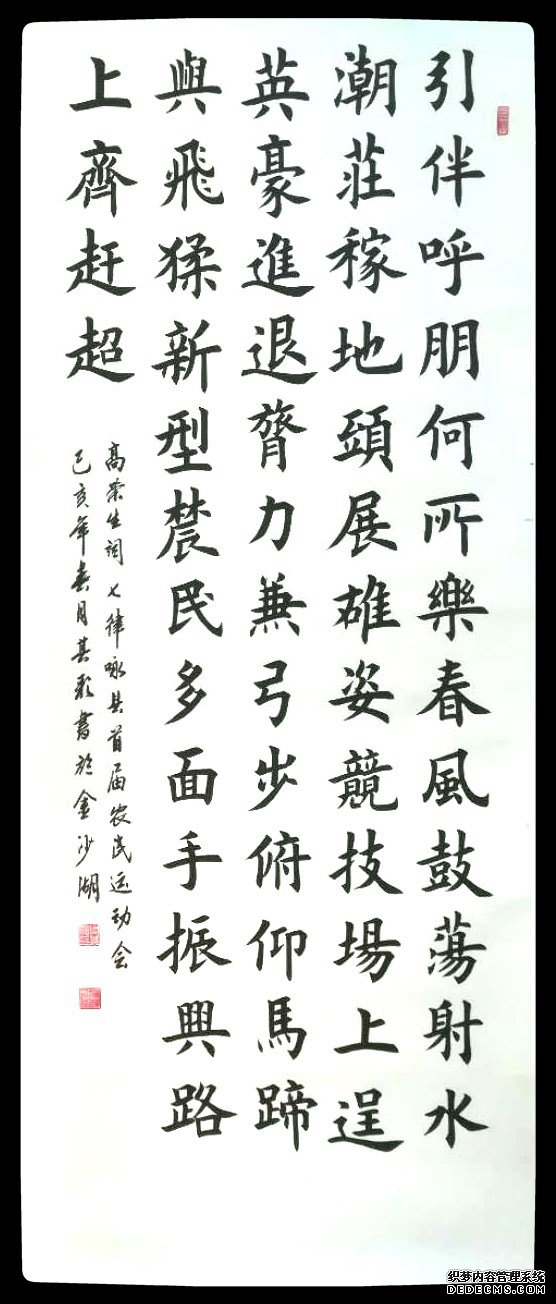 引伴呼朋何所樂春風鼓蕩射水
潮莊稼地頭展雄姿競技場上逞
英豪進退膂力兼弓步俯仰馬蹄
與飛猱新型農民多面手振興路
上齊赶超
高荣生詞七律咏县首届农民运动会
己亥年春月其彩書於金沙湖
织梦内容管理系统
DEDECMS.COM